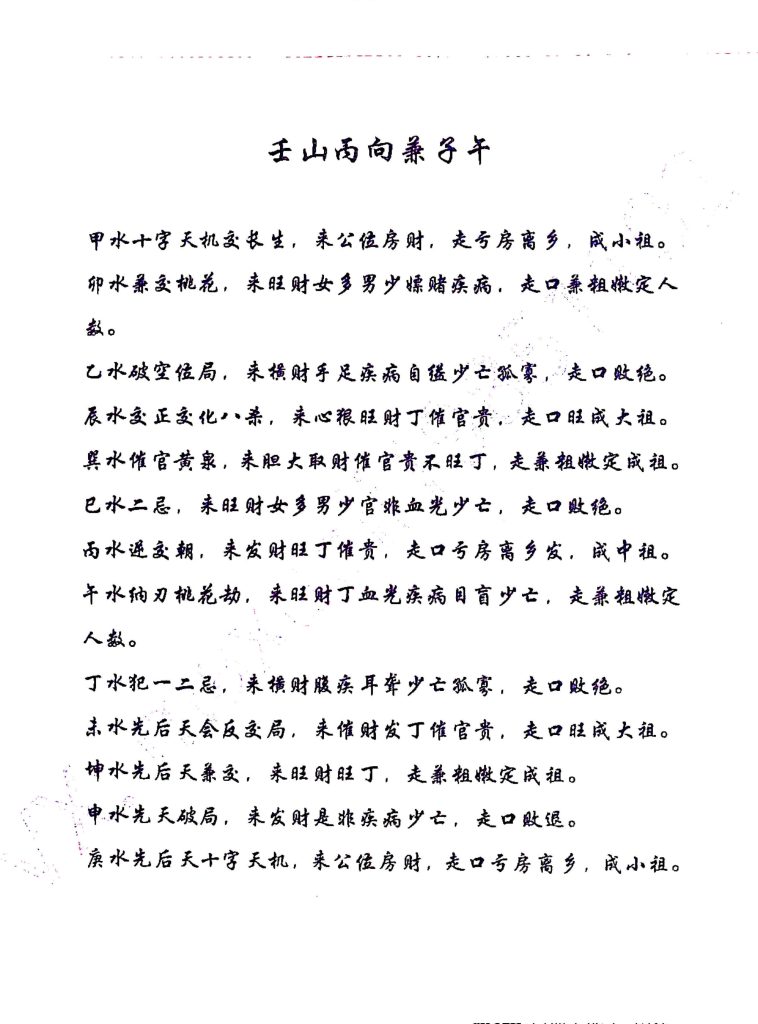 壬山丙向兼子午
甲水十字天机交长生，来公位房财，走亏房离乡，成小祖。
卯水兼交桃花，来旺财女多男少嫖赌疾病，走口兼粗嫩定人
数。
乙水破空位局，来横财手足疾病自缢少亡孤寡，走口败绝。
辰水交正交化八杀，来心狠旺财丁催官贵，走口旺成大祖。
巽水催官黄泉，来胆大取财催官贵不旺丁，走兼粗嫩定成祖。
巳水二忌，来旺财女多男少官非血光少亡，走口败绝。
丙水逆交朝，来发财旺丁催贵，走口亏房离乡发，成中祖。
午水纳刃桃花劫，来旺财丁血光疾病目盲少亡，走兼粗嫩定
人数。
丁水犯一二忌，来横财腹疾耳聋少亡孤寡，走口败绝。
未水先后天会反交局，来催财发丁催官贵，走口旺成大祖。
坤水先后天兼交，来旺财旺丁，走兼粗嫩定成祖。
申水先天破局，来发财是非疾病少亡，走口败退。
庚水先后天十字天机，来公位房财，走口亏房离乡，成小祖。